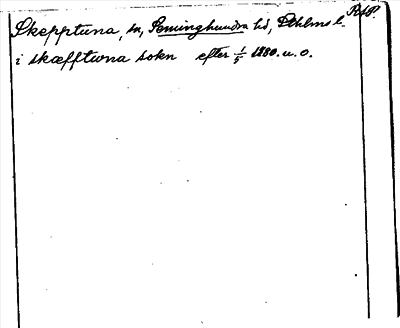 RAP.
Skepptuna, sn, Seminghundra hd, Sthlms l.
i skæfftwna sokn efter 1/5 1280. u. o.